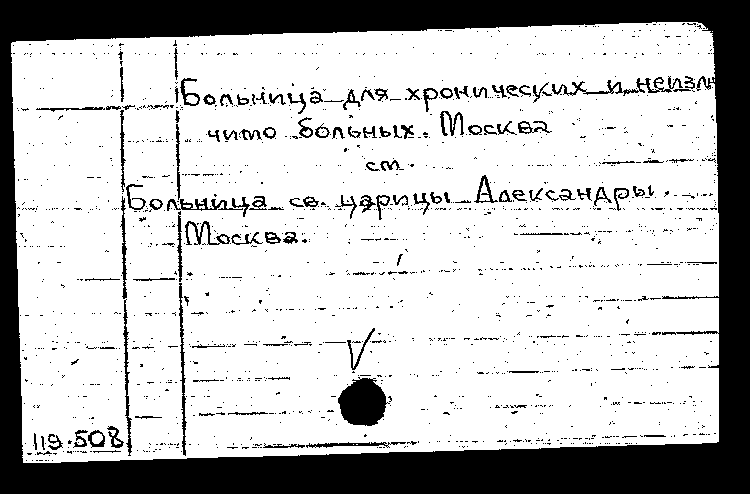 Больница для хронических и неизл
чимо больных. Москва
см.
Больница св. царицы Александры.
Москва.
119.508